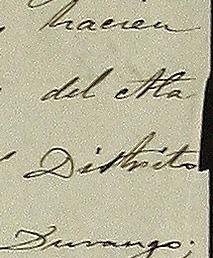 hacien
del Ala
Distrito
Durango;